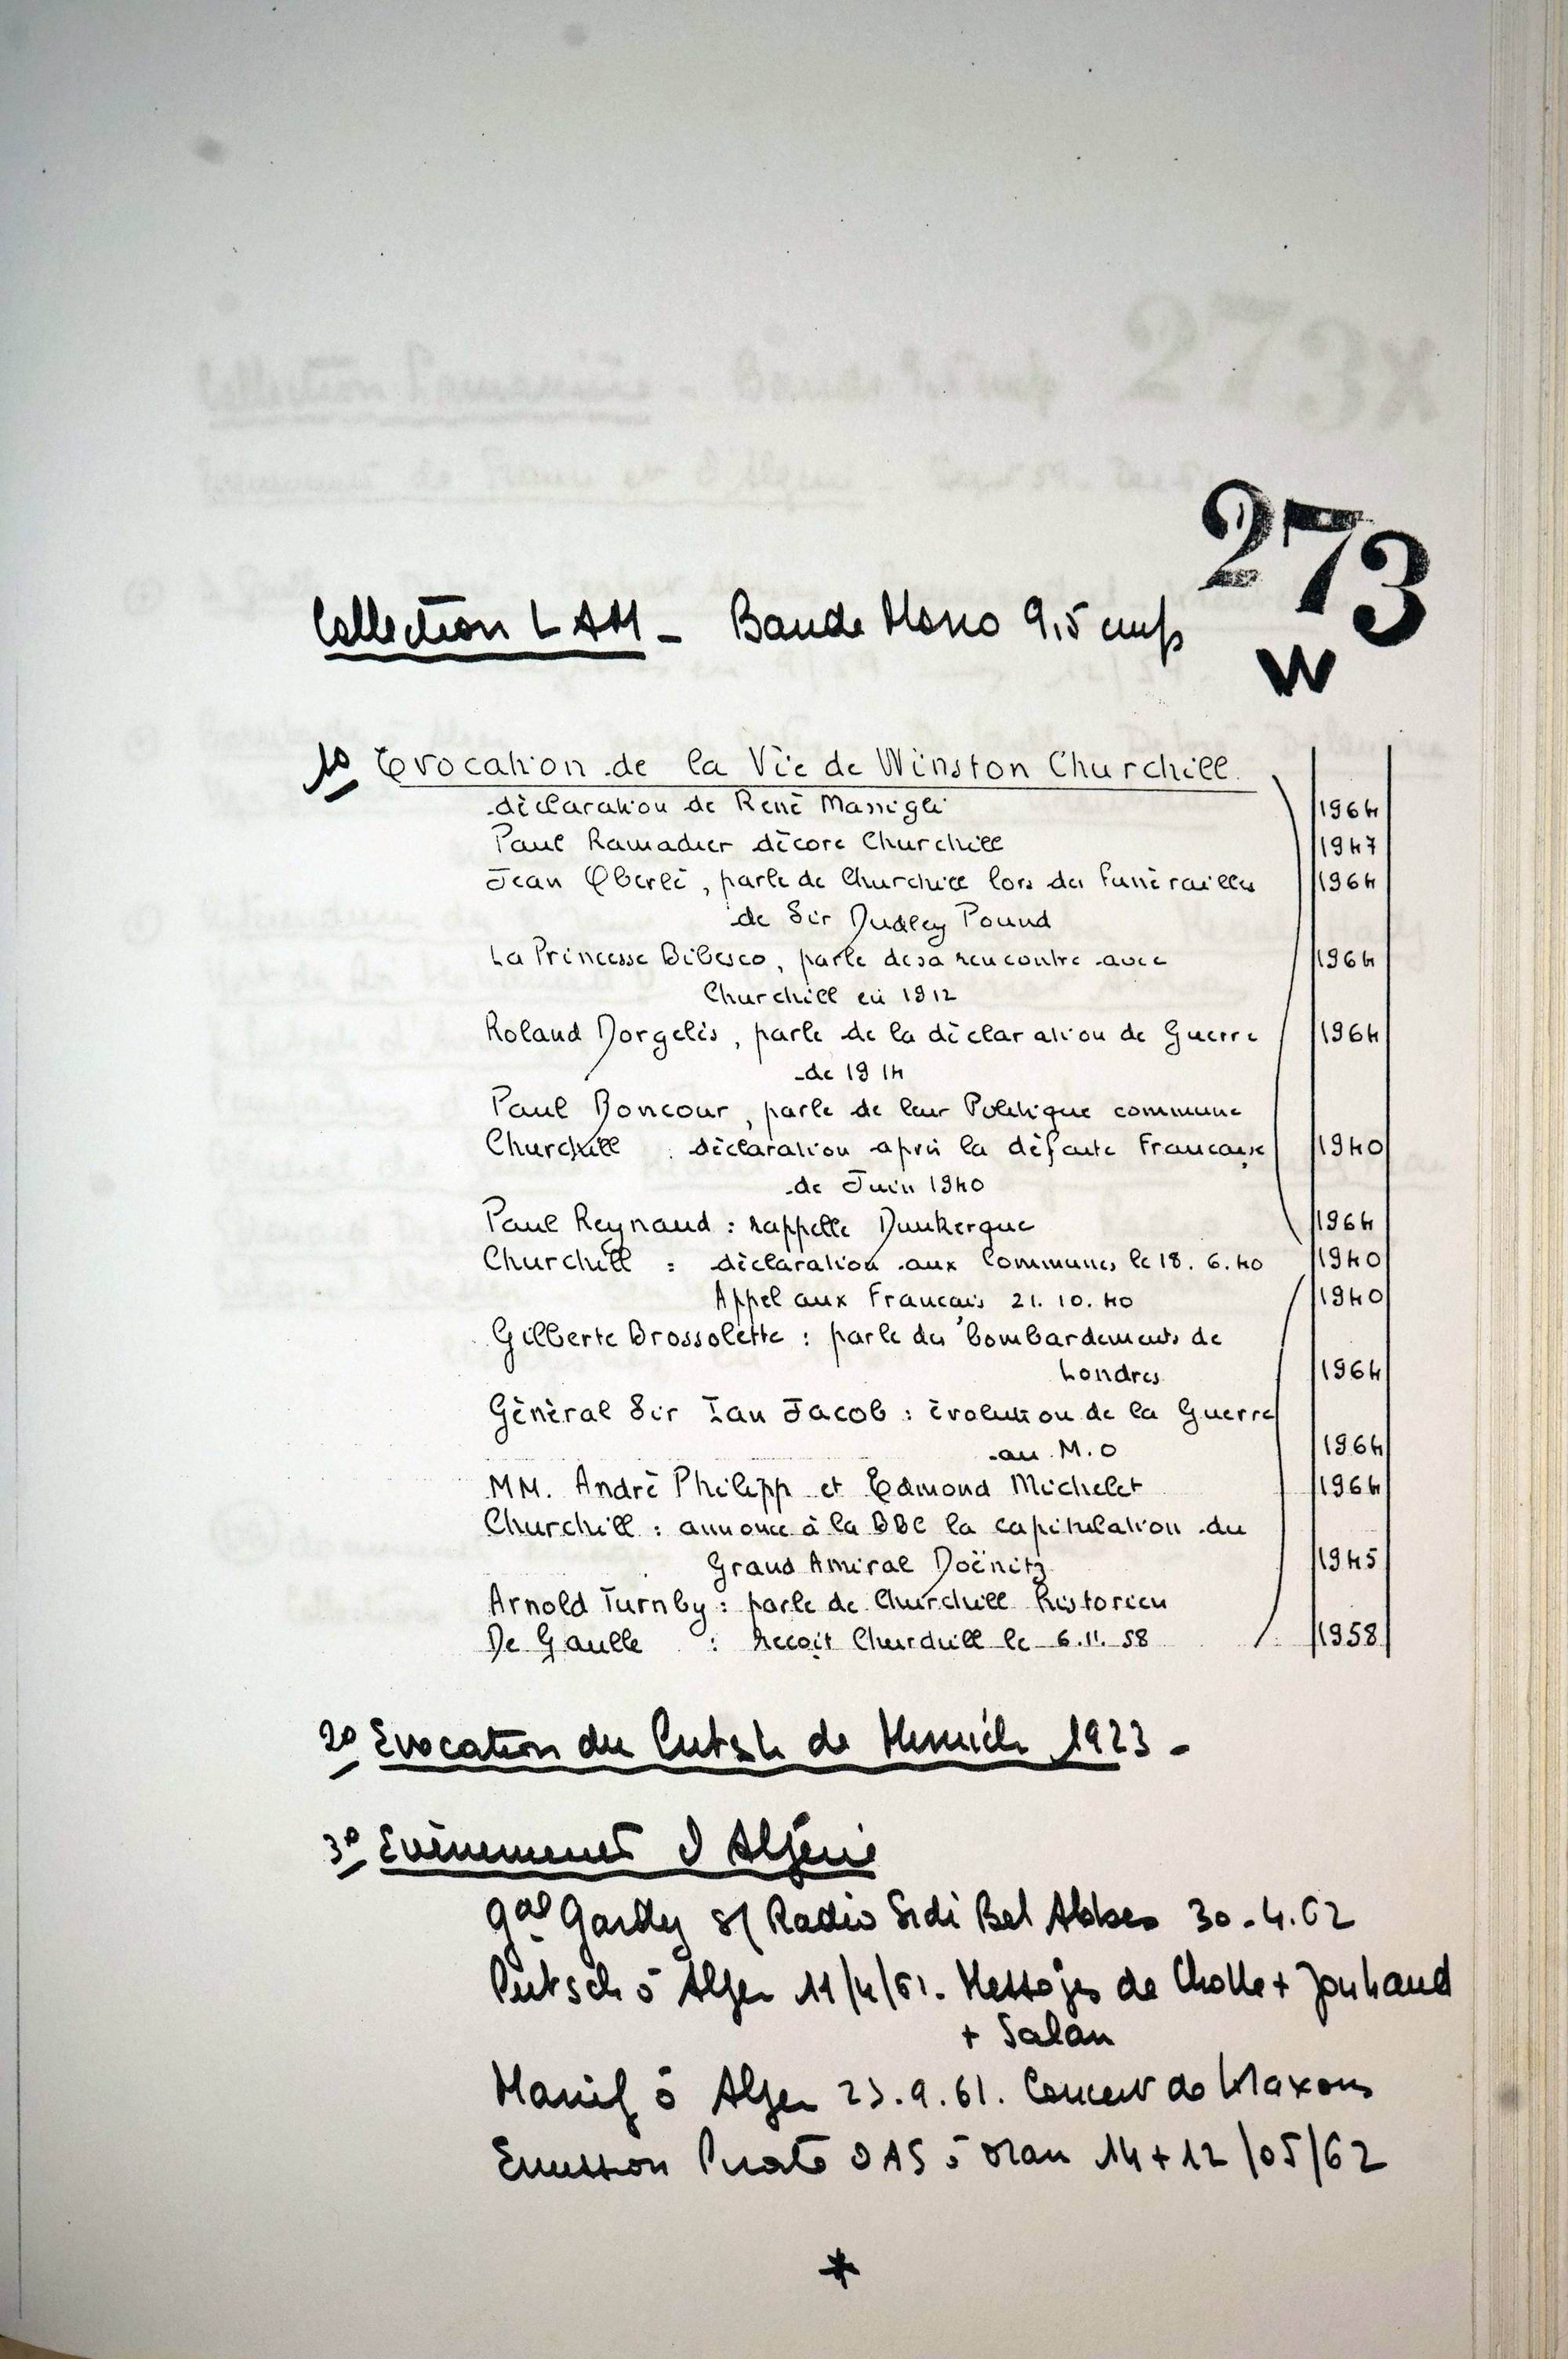 273
Collection LAM - Bande Mono 9,5 cm/s
W
1° Evocation de la Vie de Winston Churchill
déclaration de René Massigli 1964
Paul Ramadier décore Churchill 1947
Jean Oberlé, parle de Churchill lors des funérailles 1964
de Sir Dudley Pound
La Princesse Bibesco, parle de sa rencontre avec 1964
Churchill en 1912
Roland Dorgelès, parle de la déclaration de Guerre 1964
de 1914
Paul Boncour, parle de leur Politique commune
Churchill : déclaration après la défaite Française 1940
de Juin 1940
Paul Reynaud : rappelle Dunkerque 1964
Churchill : déclaration aux Communes le 18. 6. 40 1940
Appel aux Francais 21. 10. 40 1940
Gilberte Brossolette : parle des bombardements de
Londres 1964
Général Sir Ian Jacob : évolution de la Guerre
au M.O 1964
MM. André Philipp et Edmond Michelet 1964
Churchill : annonce à la BBC la capitulation du
Grand Amiral Doënitz 1945
Arnold Turnby : parle de Churchill historien
De Gaulle : reçoit Churchill le 6.11.58 1958
2° Evocation du Putsch de Munich 1923 -
3° Evènements d'Algérie
Gal Gardy s/ Radio Sidi Bel Abbes 30.4.62
Putsch à Alger /4/61. Messages de Challe + Jouhaud
+ Salan
Manif à Alger 23.9.61. Concert de Klaxons
Emission Pirate OAS à Oran 14+12/05/62
*